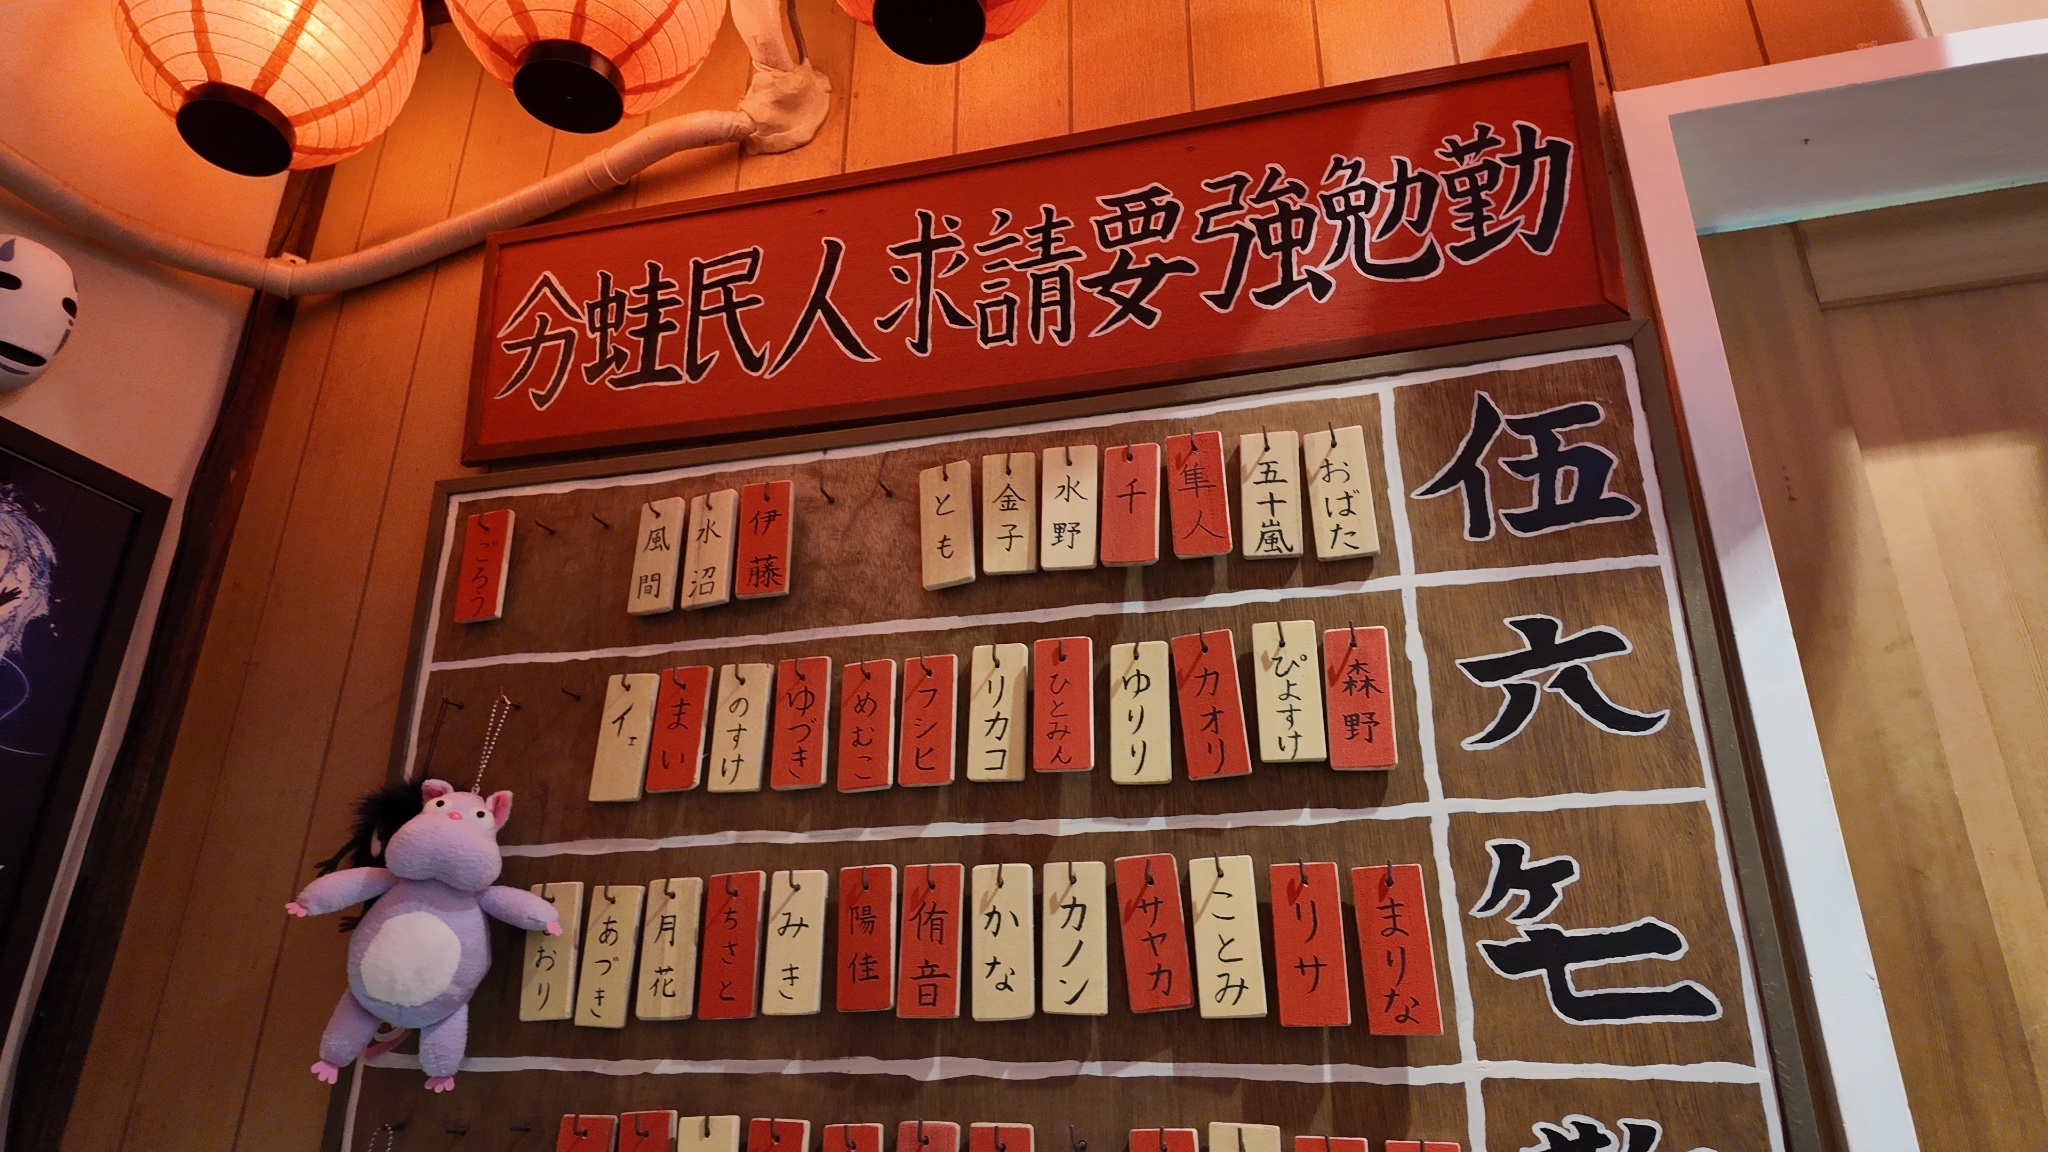 勤勉強要請求人民蛙分
伍
おばた
五十嵐
隼人
千
水野
金子
とも
伊藤
水沼
風間
ごろう
六
森野
ぴよすけ
カオリ
ゆりり
ひとみん
リカコ
フシヒ
めむこ
ゆづき
のすけ
まい
イェ
ケ七
まりな
リサ
ことみ
サヤカ
カノン
かな
侑音
陽佳
みき
ちさと
月花
あづき
おり